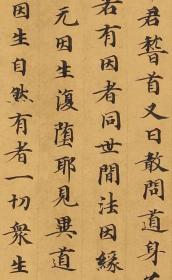 君瞽首又曰敢問道身
若有因者同世間法因緣
元因生復墮耶見異道
因生自然有者一切衆生